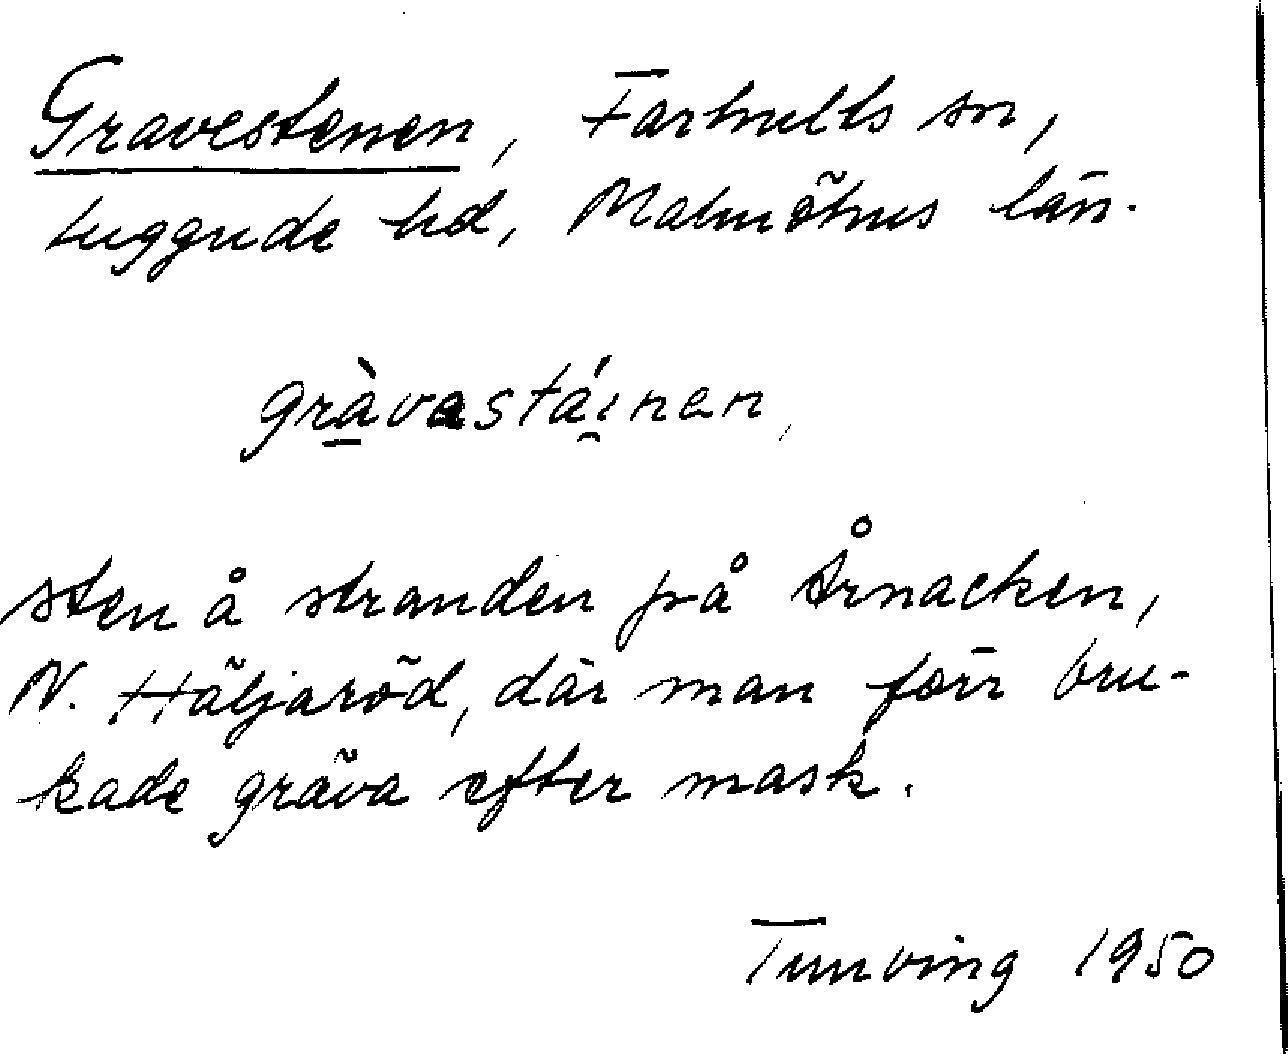 Gravestenen, Farhults sn,
Luggude hd, Malmöhus län.
gràvastáinen,
sten å stranden på Årnacken,
N. Häljaröd, där man förr bru-
kade gräva efter mask.
Tunving 1950